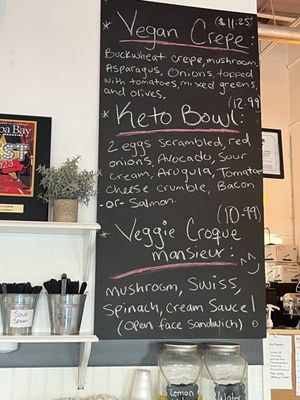 * Vegan Crepe: ($11.25)
Buckwheat crepe, mushroom,
Asparagus, Onions, topped
with tomatoes, mixed greens,
and olives.
(12.99)
* Keto Bowl:
2 eggs scrambled, red
onions, Avocado, Sour
cream, Arugula, Tomatoe
Cheese crumble, Bacon
-or- Salmon.
(10.99)
* Veggie Croque
monsieur:
mushroom, Swiss,
Spinach, Cream Sauce!
(Open face Sandwich)
a Bay
Lemon
Water